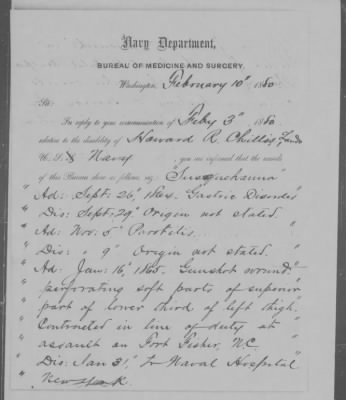 Navy Department,
BUREAU OF MEDICINE AND SURGERY,
Washington, February 10" 1880
Sir:
In reply to your communication of Feby 3" 1880
relation to the disability of Howard R. Chillis,
U. S. Navy, you are informed that the records
of this Bureau show as follows, viz: "Susquehanna"
"Ad: Sept. 26, 1864. "Gastric Disorder"
"Dis: Sept. 29" Origin not stated.
"Ad: Nov. 5" Parotitis.
"Dis: " 9" Origin not stated.
"Ad: Jan. 16, 1865. Gunshot wound."
"perforating soft parts of superior
"part of lower third of left thigh.
"Contracted in line of duty at
"assault on Fort Fisher, N.C
"Dis: Jan 31, to Naval Hospital
"New York.